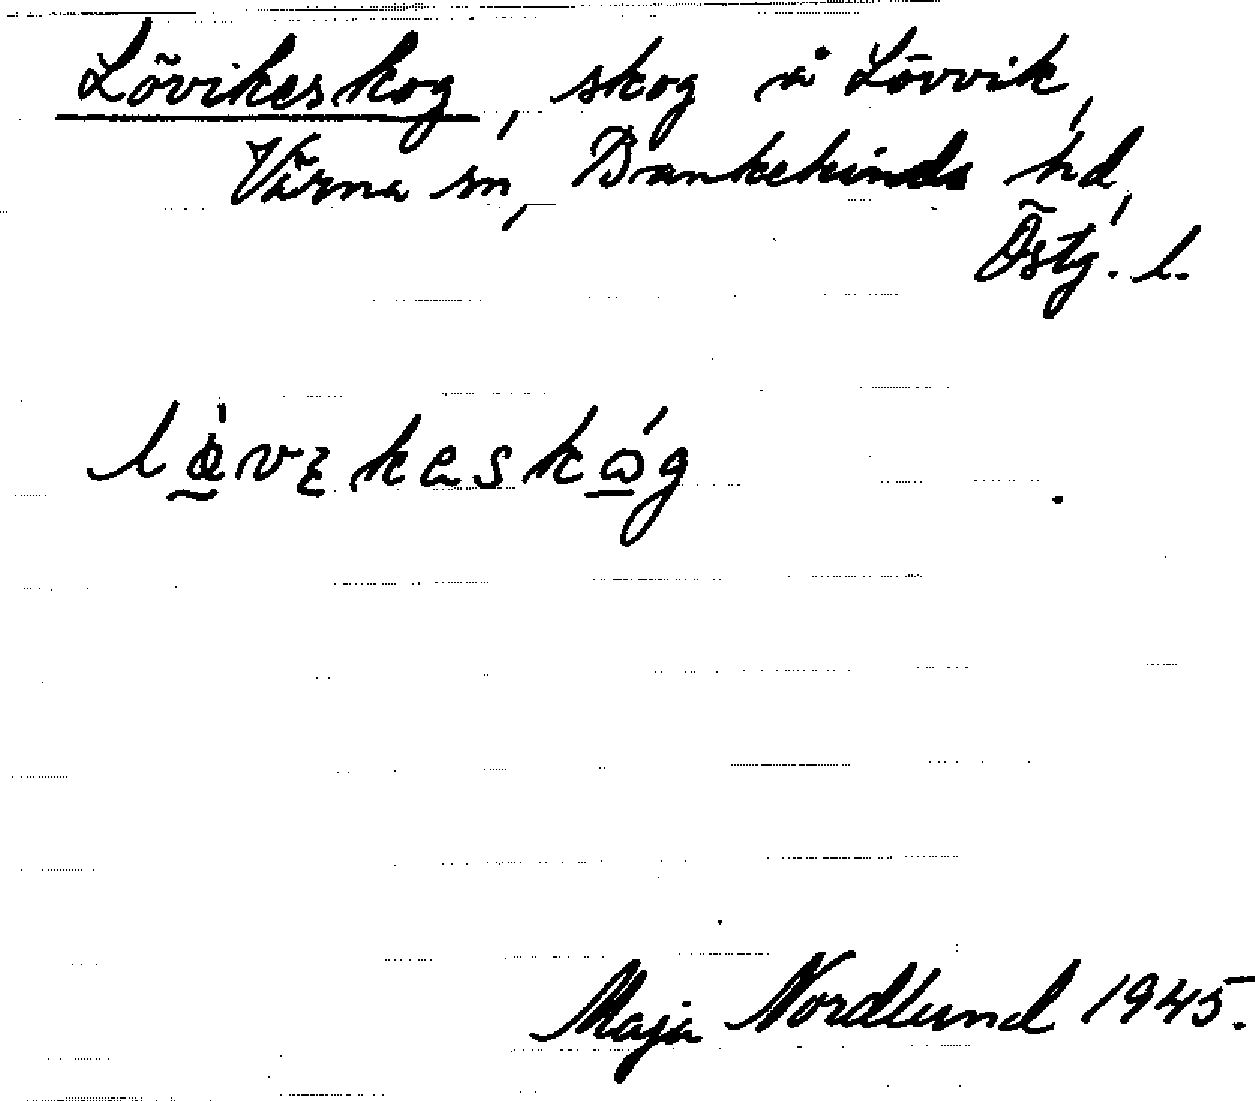 Lövikeskog, skog å Lövvik,
Värna sn, Bankekinds hd,
Östg. l.
Maja Nordlund 1945.